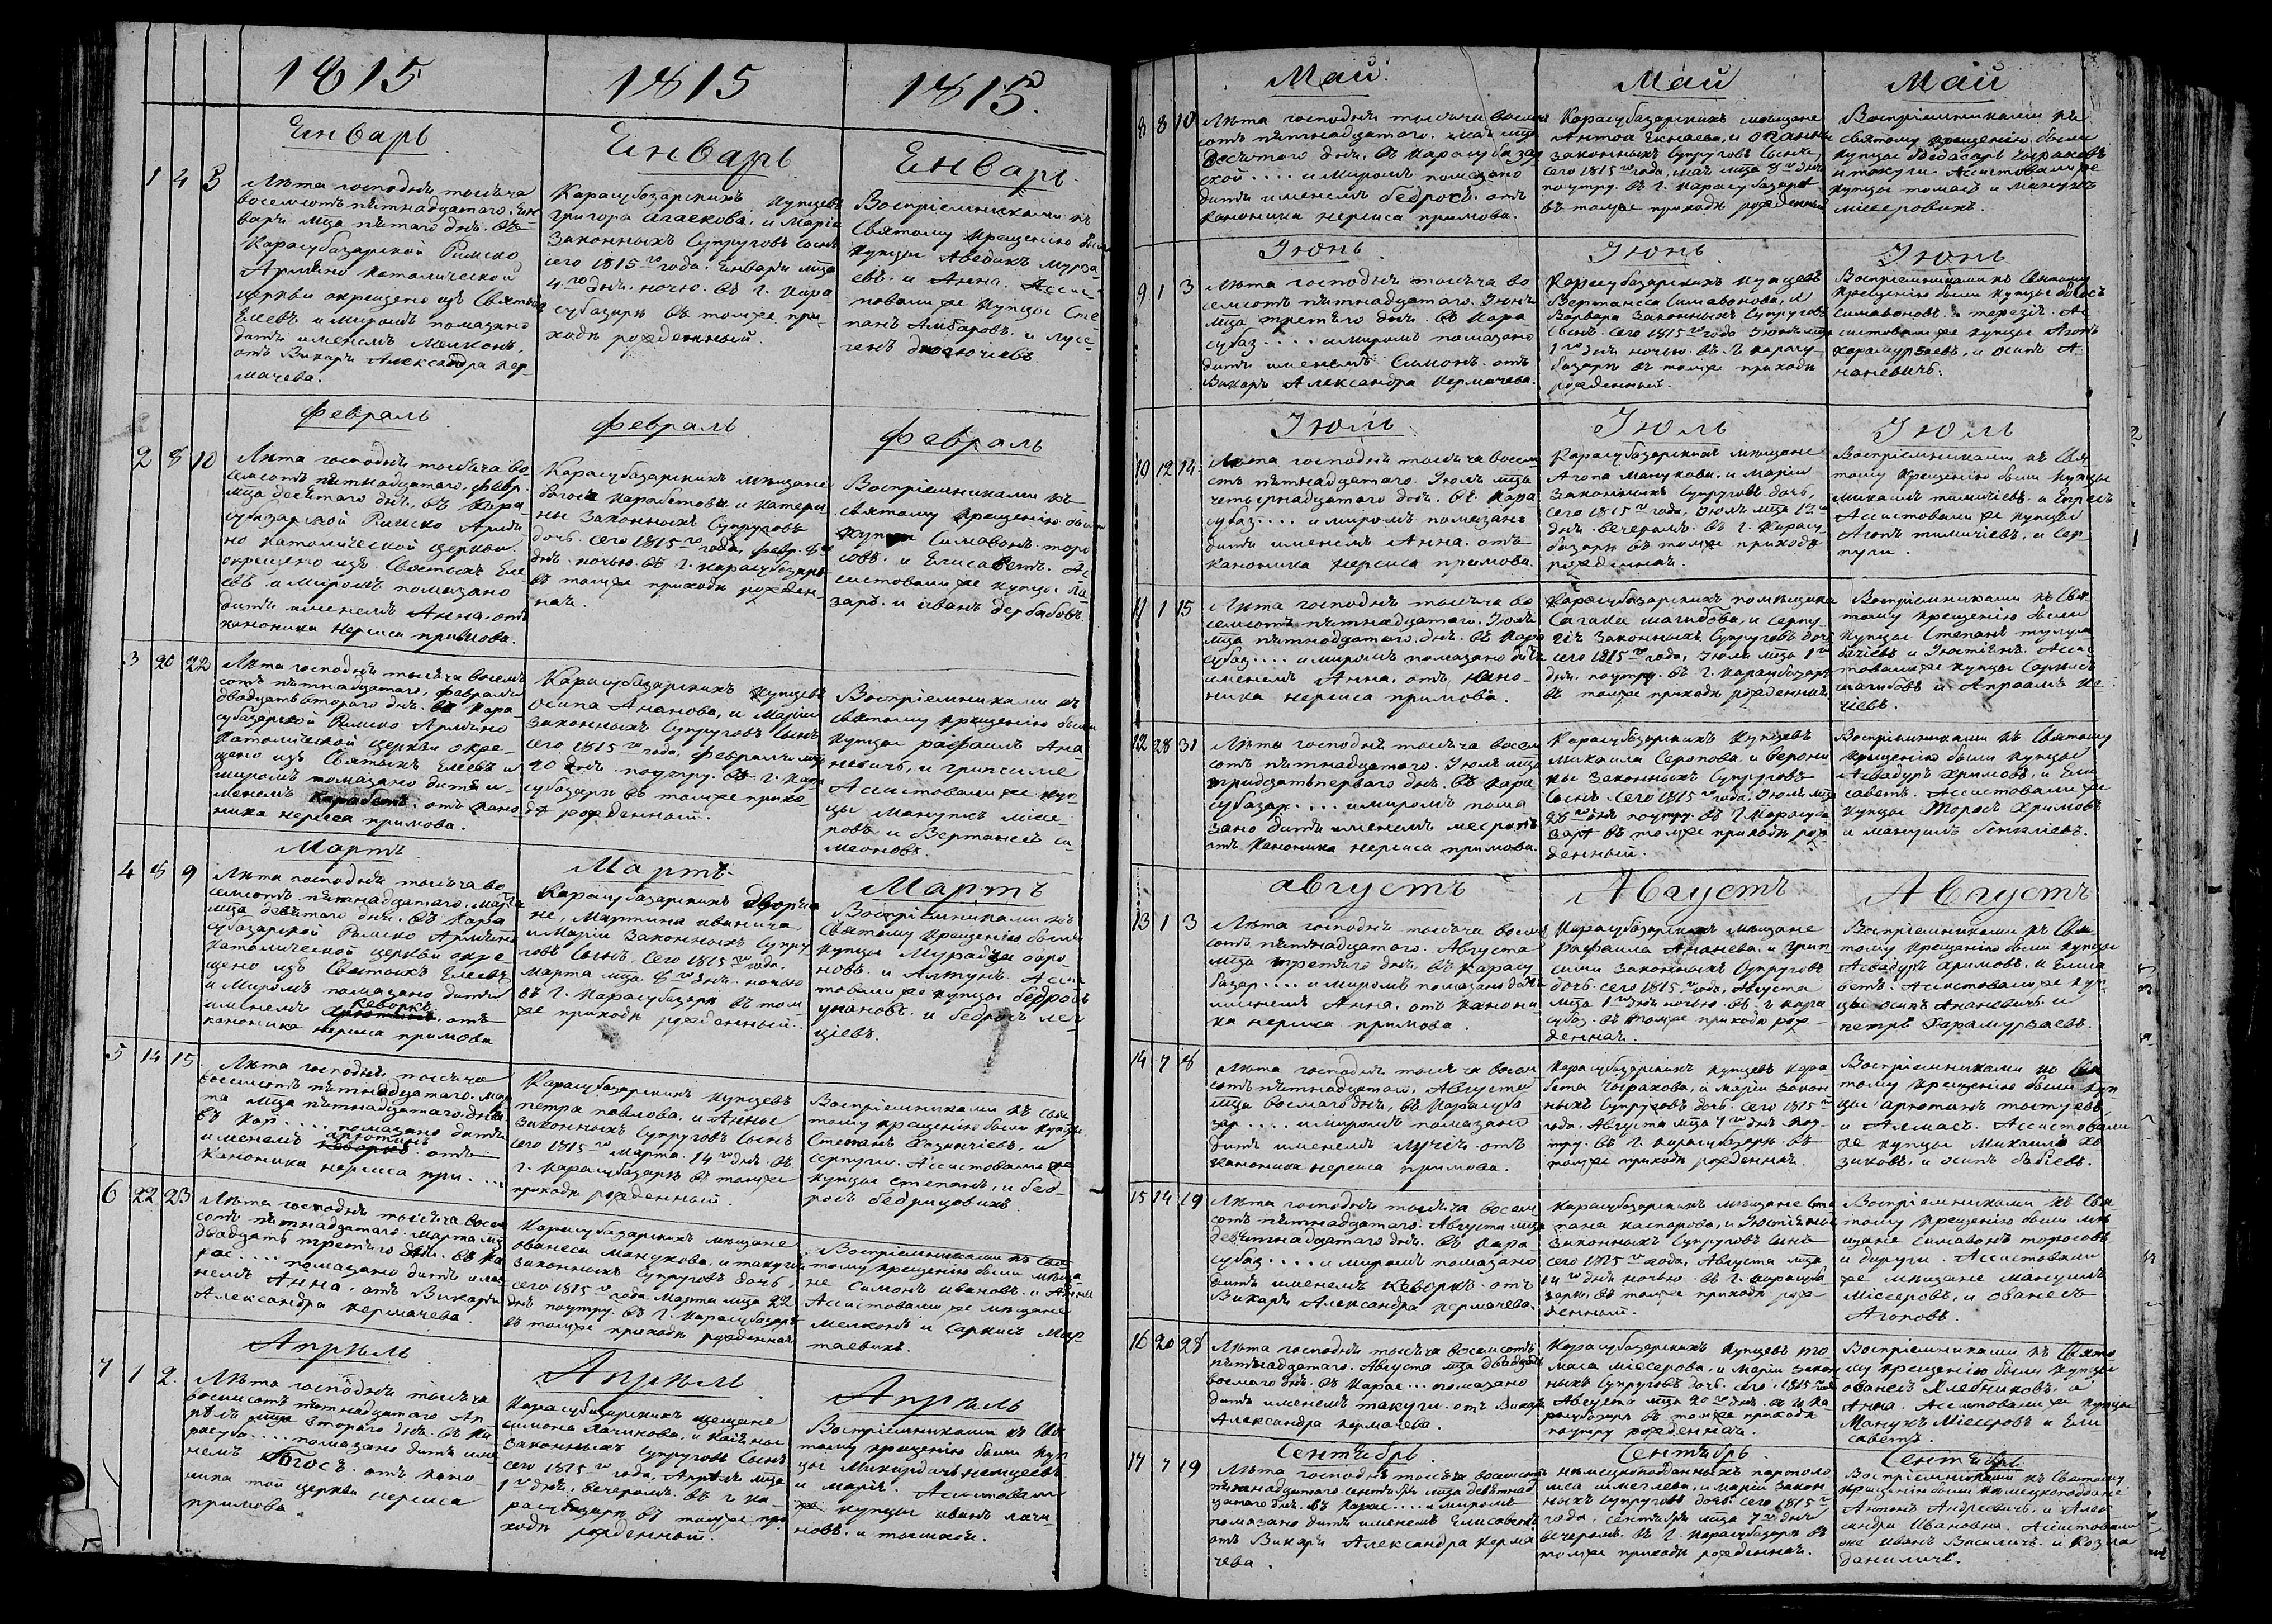 1815
1815
1815.
Енварь
Енварь
Енварь
1 4 5
Лѣта господня тысяча
восемсотъ пятнадцатаго, Ен-
варя мца пятаго дня. въ
Карасубазарской Римско
Армяно Католической
церкви окрещено изъ Святыхъ
Елеевъ и миромъ помазано
дитя именемъ
отъ Викаря Александра Кер-
мачева.
Карасубазарскихъ купцевъ
Григора и Маріи
Законныхъ Супруговъ сынъ
сего 1815го года. Енваря мца
4го дня. ночью. въ г. Кара
субазарѣ въ томже при-
ходѣ рожденный.
Воспріемниками къ
Святому Крещенію были
купцы Аведикъ Мурза-
евъ. и Анна. Ассис-
товали же купцы Сте-
панъ Амбаровъ. и
Февраль
Февраль
Февраль
2 8 10
Лѣта господня тысяча во
семсотъ пятнадцатаго, февр.
мца десятаго дня, въ Кара
субазарской Римско Армя
но Католической церкви
окрещено изъ Святыхъ Еле
евъ и миромъ помазано
дитя именемъ Анна. отъ
каноника Нерсеса Примова.
Карасубазарскихъ мѣщане
Богоса Карабетова и Катери-
ны Законныхъ Супруговъ
дочь. сего 1815го года, февр. 8го
дня. ночью. въ г. Карасубазарѣ
въ томже приходѣ рожден
ная.
Воспріемниками къ
святому крещенію были
купцы Симавонъ торо
совъ. и Елисаветъ. Ас
систовали же купцы Ла
заръ. и иванъ дербабовъ.
3 20 22
Лѣта господня тысяча восемъ
сотъ пятнадцатаго, февраля
двадцать втораго дня. въ Кара
субазарской Римско Армяно
Католической церкви окре-
щено изъ Святыхъ Елеевъ и
миромъ помазано дитя и-
менемъ Карабетъ. отъ кано
ника Нерсеса Примова.
Карасубазарскихъ купцевъ
осипа Ананова, и Маріи
Законныхъ Супруговъ сынъ
сего 1815го года, февраля мца
20 дня. поутру. въ г. Кара
субазарѣ въ томже прихо-
дѣ рожденный.
Воспріемниками къ
святому крещенію были
купцы рафаилъ Ана
невичъ, и грипсиме
Ассистовали же куп-
цы Манукъ Миссе-
ровъ и Вертанесъ си-
меоновъ.
Мартъ
Мартъ
Мартъ
4 8 9
Лѣта господня тысяча во
семсотъ пятнадцатаго. Марта
мца девятаго дня. въ Кара
субазарской Римско Армяно
Католической церкви окре-
щено изъ Святыхъ Елеевъ
и Миромъ помазано дитя
именемъ Кеворкъ отъ
каноника Нерсеса Примова
Карасубазарскихъ дворяни
не, Мартина ивановича,
и Маріи Законныхъ Супру
говъ Сынъ. Сего 1815го года.
Марта мца 8го дня. ночью
въ г. Карасубазарѣ въ том
же приходѣ рожденный.
Воспріемниками къ
Святому крещенію были
купцы
и Алтунъ. Асси
товали же купцы бедросъ
и бедросъ
5 14 15
Лѣта господня тысяча
восемсотъ пятнадцатаго. мар
та мца пятнадцатаго дня
въ Кар.... помазано дитя
именемъ арютинъ отъ
каноника Нерсеса При....
Карасубазарскихъ купцевъ
петра павлова, и Анны
законныхъ Супруговъ Сынъ
сего 1815го Марта. 14го дня. въ
г. Карасубазарѣ въ томже
приходѣ рожденный
Воспріемниками къ Свя
тому крещенію были купцы
Степанъ Хозинчіевъ, и
серпуги. Ассистовали же
купцы степанъ, и бед-
росъ бедрицовихъ.
6 22 23
Лѣта господня тысяча восем
сотъ пятнадцатаго. Марта мца
двадцать третіаго дня. въ Ка
рас.... помазано дитя име
немъ Анна, отъ Викаря
Александра Кермачева.
Карасубазарскихъ мѣщане
ованеса манукова. и такуги
Законныхъ Супруговъ дочь,
сего 1815го года. Марта мца 22
дня. поутру. въ г. Карасубазарѣ
въ томже приходѣ рожденная
Воспріемниками къ Свя
тому крещенію были мѣща
не Симонъ ивановъ. и Анна
Ассистовали же мѣщане
Мелконъ и Саркисъ Мар
таевихъ.
Апрѣль
Апрѣль
Апрѣль
7 1 2.
Лѣта господня тысяча
восемсотъ пятнадцатаго Ап-
рѣля мца втораго дня. въ Ка
расуба.... помазано дитя име
немъ Погосъ. отъ кано
ника той церкви Нерсеса
Примова
Карасубазарскихъ мещане
симона Хачикова, и
Законныхъ Супруговъ Сынъ
сего 1815го года, Апрѣля мца
1го дня. вечеромъ. въ г. Ка-
расубазарѣ въ томже при
ходѣ рожденный.
Воспріемниками къ Свя
тому крещенію были куп
цы
и марія. Ассистовали
же купцы иванъ хачи-
новъ. и
Май.
Май
Май
8 8 10
Лѣта господня тысяча восемь
сотъ пятнадцатаго. мая мца
десятаго дня. въ Карасубазар
ской.... и Миромъ помазано
дитя именемъ бедросъ. отъ
каноника Нерсеса Примова.
Карасубазарскихъ мѣщане
Антона и
законныхъ Супруговъ Сынъ,
сего 1815го года, мая мца 8го дня
поутру. въ г. Карасубазарѣ
въ томже приходѣ рожденный
Воспріемниками къ
святому крещенію были
купцы
и такуги. Ассистовали же
купцы томасъ и Манукъ
міссеровихъ.
Іюнь
Іюнь
Іюнь
9 1 3
Лѣта господня тысяча во
семсотъ пятнадцатаго. Іюня
мца третіаго дня. въ Кара
субаз.... и миромъ помазано
дитя именемъ Симонъ. отъ
Викаря Александра Кермачева.
Карасубазарскихъ купцевъ
Вертанеса Симавонова, и
Варвара Законныхъ Супруговъ
Сынъ. сего 1815го года Іюня мца
1го дня ночью. въ г. Карасу-
базарѣ въ томже приходѣ
рожденный.
Воспріемниками къ Святому
крещенію были купцы богосъ
Симавоновъ. и терезія. Ас
систовали же купцы Агопъ
карамурзаевъ, и осипъ А-
наневичъ.
Іюль
Іюль
Іюль
10 12 14
Лѣта господня тысяча восемь
сотъ пятнадцатаго. Іюля мца
четырнадцатаго дня. въ Кара
субаз.... и миромъ помазано
дитя именемъ Анна. отъ
каноника Нерсеса Примова.
Карасубазарскихъ мѣщане
Агопа Манукова, и Маріи
Законныхъ Супруговъ дочь,
сего 1815го года, Іюля мца 12го
дня. вечеромъ. въ г. Карасу-
базарѣ въ томже приходѣ
рожденная.
Воспріемниками къ Свя
тому крещенію были купцы
Ассистовали же купцы
Агопъ и Сер-
пуги.
11 1 15
Лѣта господня тысяча во
семсотъ пятнадцатаго. Іюля
мца пятнадцатаго. дня. въ Кара
субаз.... и миромъ помазано дитя
именемъ Анна. отъ, кано-
ника Нерсеса Примова.
Карасубазарскихъ помѣщика
Сагака шагибова, и серпу-
гія Законныхъ Супруговъ дочь
сего 1815го года, Іюля мца 1го
дня. поутру. въ г. Карасубазарѣ
въ томже приходѣ рожденная.
Воспріемниками къ Свя
тому крещенію были
купцы Степанъ
и Іюстіянъ. Асси
товали же купцы Саркисъ
шагибовъ и Апраамъ
12 28 31
Лѣта господня тысяча восем
сотъ пятнадцатаго. Іюля мца
тридцать перваго дня. въ Кара
субазар.... и миромъ пома
зано дитя именемъ месропъ
отъ Каноника Нерсеса Примова.
Карасубазарскихъ купцевъ
Михаила Серопова и Верони
ки Законныхъ Супруговъ
Сынъ. сего 1815го года, Іюля мца
28го дня поутру. въ г. Карасуба
зарѣ въ томже приходѣ рож
денный.
Воспріемниками къ Святому
крещенію были купцы
Асвадуръ Хримовъ, и Ели
саветъ. Ассистовали же
купцы Торосъ Хримовъ
и мануилъ
августъ
Августъ
Августъ
13 1 3
Лѣта господня тысяча восемь
сотъ пятнадцатаго. Августа
мца третіаго дня, въ Карасу
базар.... и миромъ помазано дитя
именемъ Анна. отъ Канони
ка Нерсеса Примова.
Карасубазарскихъ мѣщане
рафаила Ананева. и Грип
сими Законныхъ Супруговъ
дочь. сего 1815го года, Августа
мца 1го дня ночью. въ г. Кара
субаз. въ томже приходѣ рож-
денная.
Воспріемниками къ Свя
тому крещенію были купцы
Асвадуръ хримовъ. и Елиса
бетъ. Ассистовали же куп
цы осипъ Ананевичъ и
петръ Карамурзаевъ.
14 7 8
Лѣта господня тысяча восем
сотъ пятнадцатаго. Августа
мца восмаго дня, въ Карасуба
зар.... и миромъ помазано
дитя именемъ Лучія. отъ
каноника Нерсеса Примова.
Карасубазарскихъ купцевъ Кара-
бета Чиракова, и Маріи Закон
ныхъ Супруговъ дочь. сего 1815го
года. Августа мца 7го дня поу-
тру. въ г. Карасубазарѣ въ
томже приходѣ рожденная.
Воспріемниками ко Свя
тому крещенію были куп
цы арютинъ
и Алмасъ. Ассистовали
же купцы Михаилъ Хо
зиковъ, и осипъ бабіевъ.
15 14 19
Лѣта господня тысяча восем
сотъ пятнадцатаго. Августа мца
девятнадцатаго дня. въ Кара
субаз.... и миромъ помазано
дитя именемъ Кеворкъ. отъ
Викаря Александра Кермачева.
Карасубазарскихъ мѣщане сте
пана каспарова, и Іюстіяны
Законныхъ Супруговъ Сынъ
сего 1815го года, Августа мца
14го дня ночью. въ г. Карасуба
зарѣ въ томже приходѣ рож-
денный.
Воспріемниками къ Свя
тому крещенію были мѣ
щане Симавонъ торосовъ
и дируги. Ассистовали
же мѣщане мануилъ
Міссеровъ, и ованесъ
Агоповъ.
16 20 28
Лѣта господня тысяча восемсотъ
пятнадцатаго. Августа мца двадцать
восмаго дня. въ Карас... помазано
дитя именемъ такуги. отъ Викаря
Александра Кермачева.
Карасубазарскихъ купцевъ то
маса міссерова, и Маріи Закон
ныхъ Супруговъ дочь. сего. 1815го года
Августа мца 20го дня. въ г. Ка
расубазарѣ въ томже приходѣ
поутру рожденная.
Воспріемниками къ Свято
му крещенію были купцы
ованесъ Хлебниковъ. и
Анна. Ассистовали же купцы
Манукъ Міссеровъ и Ели
саветъ.
Сентябрь
Сентябрь
Сентябрь
17 7 19
Лѣта господня тысяча восемсотъ
пятнадцатаго Сентября мца девятнад
цатаго дня. въ Карас.... и миромъ
помазано дитя именемъ Елисаветъ
отъ Викаря Александра Керма
чева.
нѣмецкоподданныхъ партоло
и Маріи Закон
ныхъ Супруговъ дочь. сего 1815го
года, Сентября мца 7го дня
вечеромъ. въ г. Карасубазарѣ въ
томже приходѣ рожденная.
Воспріемниками къ Святому
крещенію были нѣмецкоподдане
Антонъ Андреевичъ, и Алек
сандра Ивановна. Ассистовали
же иванъ Василичъ. и Козма
даниличъ.